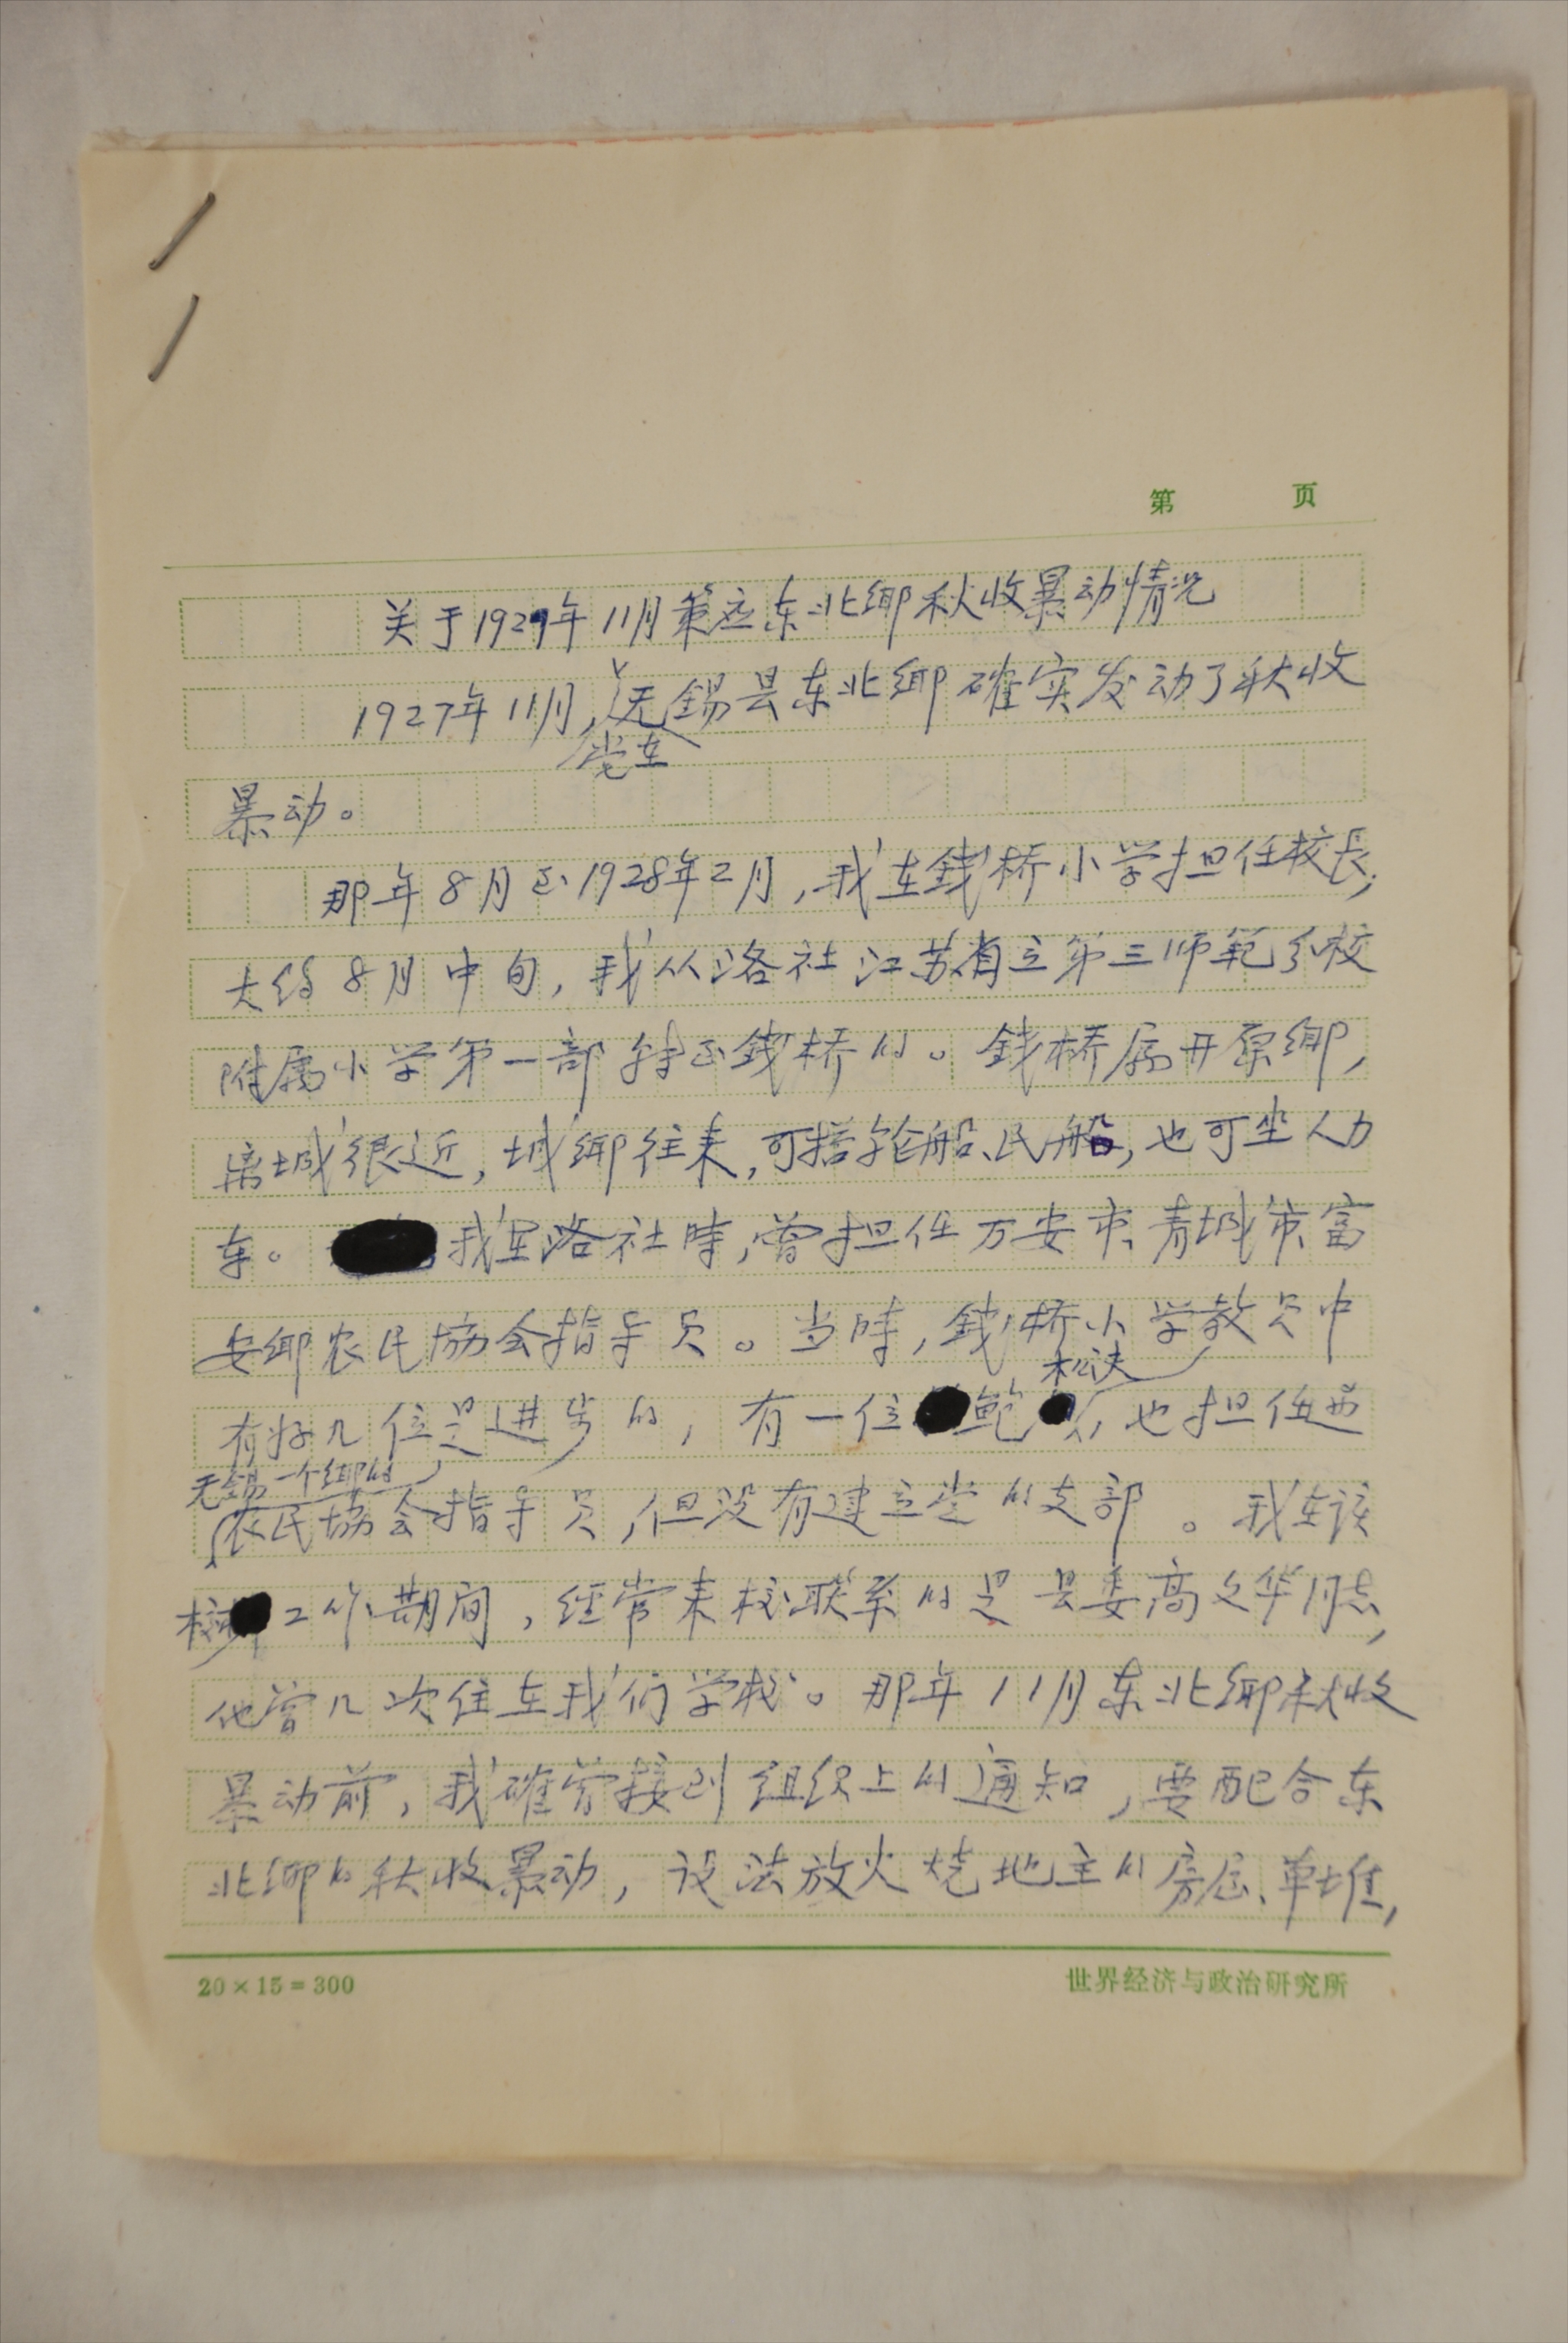 第 页
关于1927年11月策应东北乡秋收暴动情况
1927年11月,党在无锡县东北乡確实发动了秋收
暴动。
那年8月至1928年2月,我在錢桥小学担任校长,
大约8月中旬,我从洛社江苏省立第三师範学校
附属小学第一部转到錢桥的。錢桥属开原乡,
离城很近,城乡往来,可搭轮船、民船,也可坐人力
车。我在洛社時,曾担任万安市、青城市、富
安乡农民協会指导员。当時,錢桥小学教员中
有好几位是进步的,有一位鲍松涛,也担任过
无锡一个乡的农民協会指导员,但没有建立党的支部。我在该
校工作期间,经常来校联系的是县委高文华同志,
他曾几次住在我们学校。那年11月东北乡秋收
暴动前,我確曾接到组织上的通知,要配合东
北乡的秋收暴动,设法放火烧地主的房屋、草堆,
20×15=300 世界经济与政治研究所